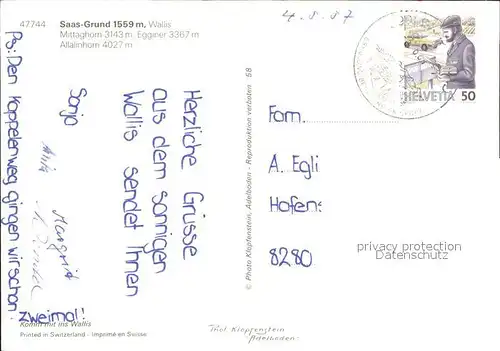 47744
Saas-Grund 1559 m, Wallis
Mittaghorn 3143 m - Egginer 3367 m
Allalinhorn 4027 m
4.8.87
HELVETIA 50
Herzliche Grüsse
aus dem sonnigen
Wallis sendet Ihnen
Sonja
Margrit
Ps: Den Kappelenweg gingen wir schon
zweimal!
© Photo Klopfenstein, Adelboden - Reproduktion verboten 58
Fam.
A. Egli
Hofens
8280
privacy protection
Datenschutz
Komm mit ins Wallis
Printed in Switzerland - Imprimé en Suisse
Phot. Klopfenstein
Adelboden